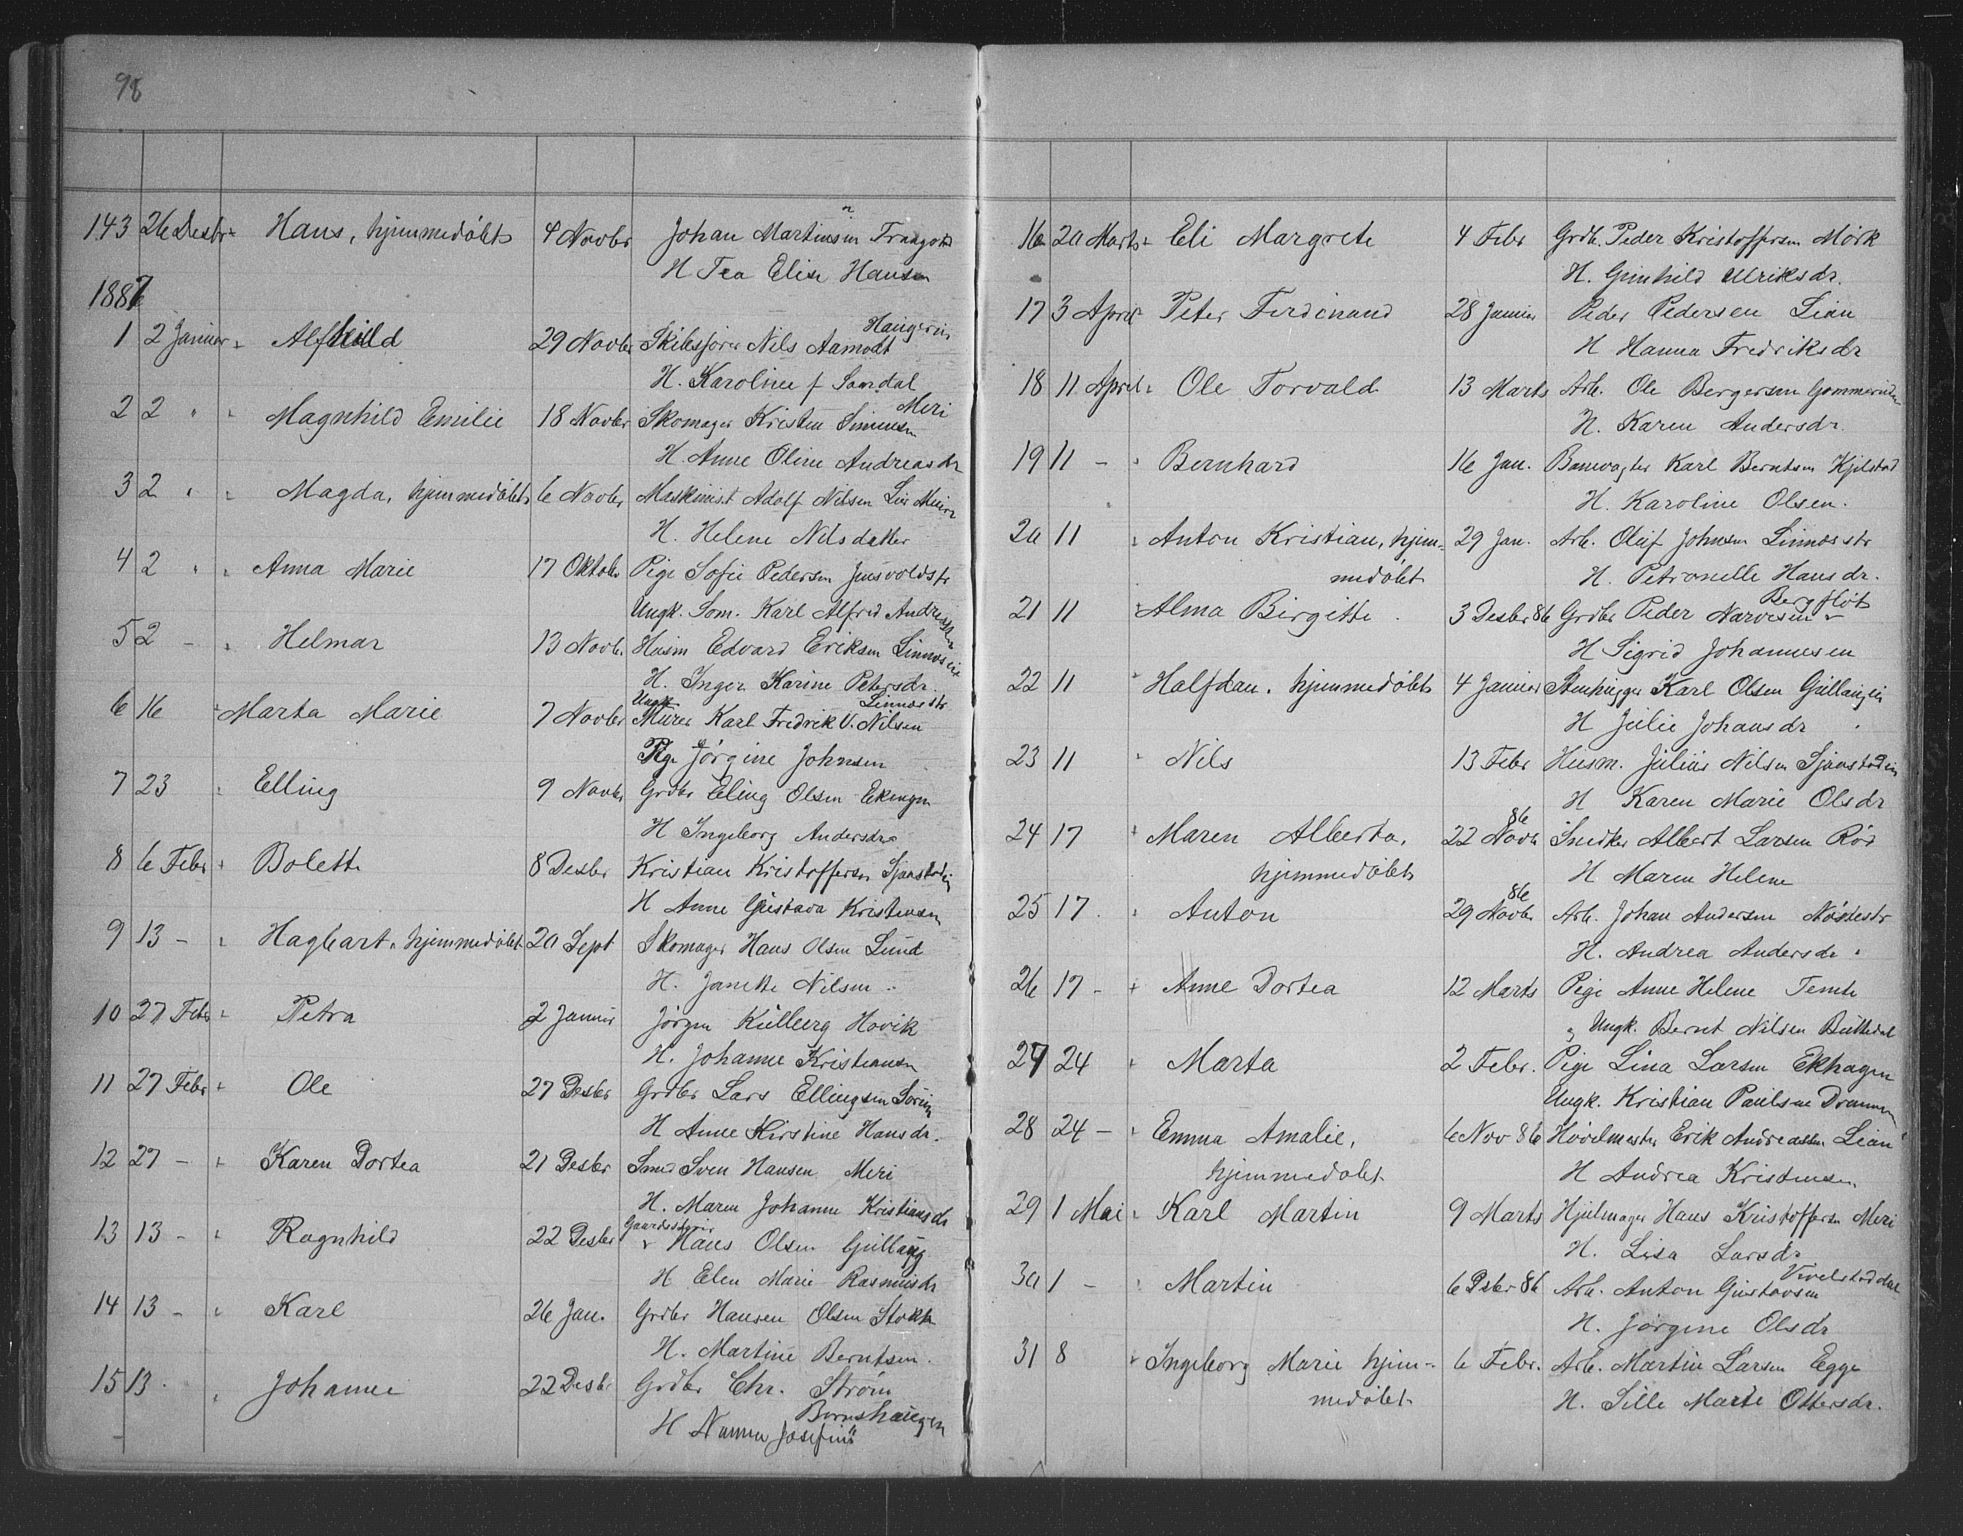 98
143 26 Desbr " Hans, hjemmedøbt 4 Novbr Johan Martinsen
H Tea Elise Hansen
1887
1 2 Januar " Alfhild 29 Novbr Skibsfører Nils Aamodt Haugerin
H. Karoline f Samdal
2 2 " " Magnhild Emilie 18 Novbr Skomager Kristen Simensen Meri
H. Anne Oline Andreasdr
3 2 " " Magda, hjemmedøbt 6 Novbr Maskinist Adolf Nilsen
H. Helene Nilsdatter
4 2 " " Anna Marie 17 Oktobr Pige Sofie Pedersen
Ungk. Søm. Karl Alfred Andreassen
5 2 – " Helmar 13 Novb. Husm Edvard Eriksen
H. Inger Karine Petersdr.
6 16 " Marta Marie 7 Novbr Ungk. Murer Karl Fredrik V. Nilsen Linnæsstr
Pige Jørgine Johnsen
7 23 " Elling 9 Novbr Grdbr Eling Olsen Ekingen
H Ingeborg Andersdr
8 6 Febr " Bolette 8 Desbr Kristian Kristoffersen
H Anne Gustava Kristensen
9 13 – " Hagbart, hjemmedøbt 20 Sept Skomager Hans Olsen Lund
H. Janette Nilsen
10 27 Febr " Petra 2 Januar Jørgen Kullberg Hovik
H. Johanne Kristiansen
11 27 Febr " Ole 27 Desbr Grdbr Lars Ellingsen Sørum
H Anne Kirstine Hansdr.
12 27 – " Karen Dortea 21 Desbr Smed Sven Hansen Meri
H. Maren Johanne Kristiansdr
13 13 – " Ragnhild 22 Desbr Hans Olsen Gullaug
H Elen Marie Rasmusdr
14 13 – " Karl 26 Jan. Grdbr Hansen Olsen Stokke
H. Martine Berntsen.
15 13 " Johanne 22 Desbr Grdbr Chr. Strøm
Bernshaugen
H Nanna Josefine
16 20 Marts " Eli Margrete 4 Febr Grdb. Peder Kristoffersen Mørk
H. Gunhild Ulriksdr.
17 3 April " Peter Ferdinand 28 Januar Peder Pedersen Lian
H Hanna Fredriksdr
18 11 April " Ole Torvald 13 Marts Arb. Ole Bergersen
H. Karen Andersdr.
19 11 – " Bernhard 16 Jan. Banevogter Karl Berntsen Kjelstad
H. Karoline Olsen.
20 11 " Anton Kristian, hjem- 29 Jan. Arb. Oluf Johnsen Linnæsstr
medøbt H. Petronelle Hansdr.
21 11 " Alma Birgitte 3 Desbr 86 Grdbr Peder Narvesen Bergfløt
H Sigrid Johannesen
22 11 " Halfdan, hjemmedøbt 4 Januar Stenhugger Karl Olsen
H Julie Johansdr
23 11 " Nils 13 Febr Husm. Julius Nilsen
H Karen Marie Olsdr
24 17 " Maren Alberta, 22 Novb 86 Snedker Albert Larsen Rød
hjemmedøbt H Maren Helene
25 17. " Anton 29 Novbr 86 Arb. Johan Andersen Nøstestr
H. Andrea Andersdr
26 17 – " Anne Dortea 12 Marts Pige Anne Helene Temte
" Ungk. Bernt Nilsen
27 24 " Marta 2 Febr. Pige Lina Larsen Ekhagen
Ungk. Kristian Paulsen Drammen
28 24 – " Emma Amalie, 6 Nov 86 Høvelmester Erik Andreassen Lian
hjemmedøbt H Andrea Kristensen
29 1 Mai " Karl Martin 9 Marts Hjulmager Hans Kristoffersen Meri
H. Lisa Larsdr
30 1 – " Martin 6 Dsbr 86 Arb. Anton Gustavsen
H. Jørgine Olsdr
31 8 " Ingeborg Marie hjem- 6 Febr. Arb. Martin Larsen Egge
medøbt H. Sille Marte Ottersdr.